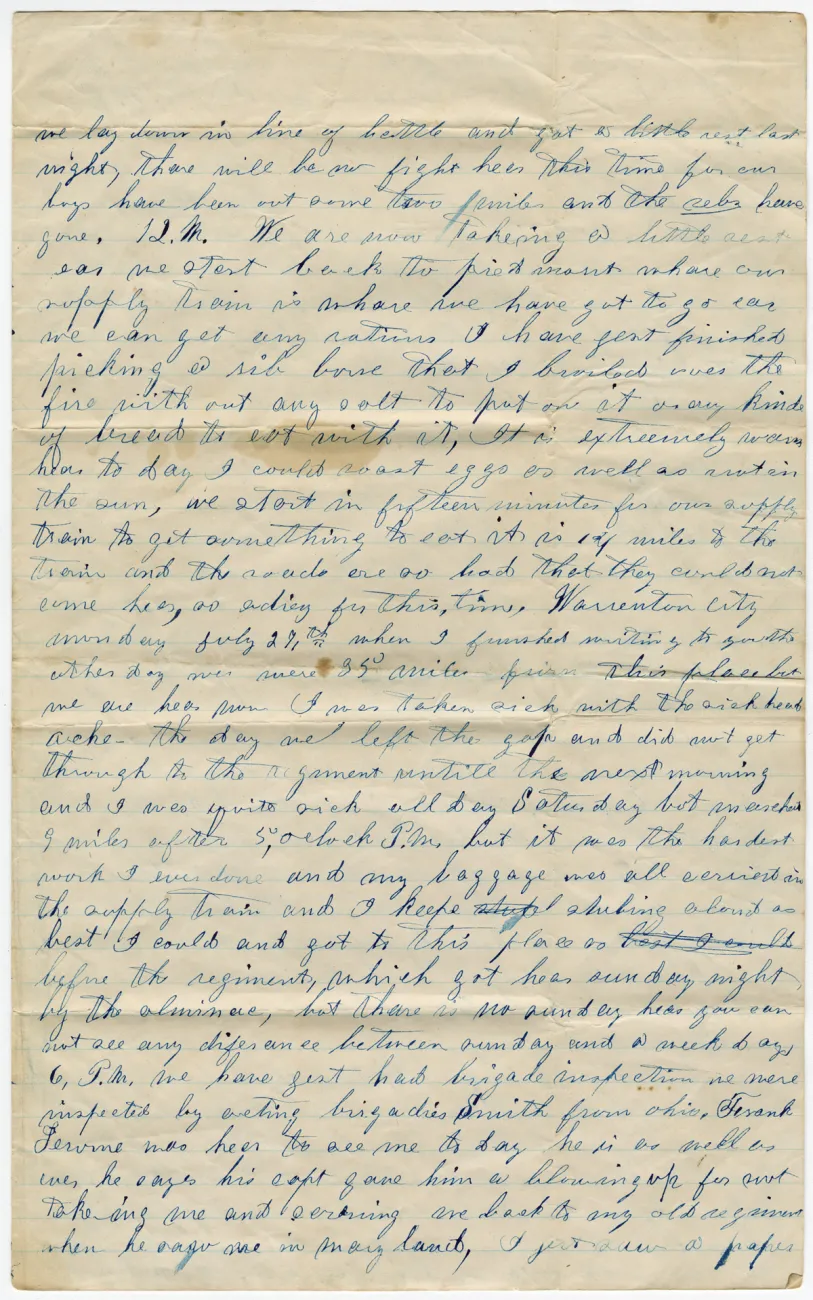 we lay down in line of battle and got a little rest last
night, there will be no fight hear this time for our
boys have been out some two miles and the rebs have
gone. 12. M. We are now takeing a little rest
ear we start back to piedmont whare our
supply train is whare we have got to go ear
we can get any rations I have gest finished
picking a rib bone that I broiled over the
fire with out any salt to put on it or any kinde
of bread to eat with it, It is extreemely warm
hear to day I could roast eggs as well as not in
the sun, we start in fifteen minutes for our supply
train to get something to eat it is miles to the
train and the roads are so bad that they could not
come hear, so adiey for this, time, Warrenton City
monday july 27,th when I finished writing to you the
other day we were 35 miles from this place but
we are hear now I was taken sick with the sick head
ache the day we left the gap and did not get
through to the regment untill the next morning
and I was quite sick all day Saturday but marched
9 miles after 5, oclock P.M, but it was the hardest
work I ever done and my baggage was all carried in
the supply train and I keepe stubing aloud as
best I could and got to this place as best I could
before the regiment, which got hear sunday night
by the alminac, but thare is no sunday hear you can
not see any diferance between sunday and a week day,
6, P.M. we have gest had brigade inspection we were
inspected by acting brigadier Smith from ohio. Frank
Jerome was hear to see me to day he is as well as
ever he sayes his capt gave him a blowing up for not
takeing me and me back to my old regiment
when he saw me in mary land, I just saw a paper